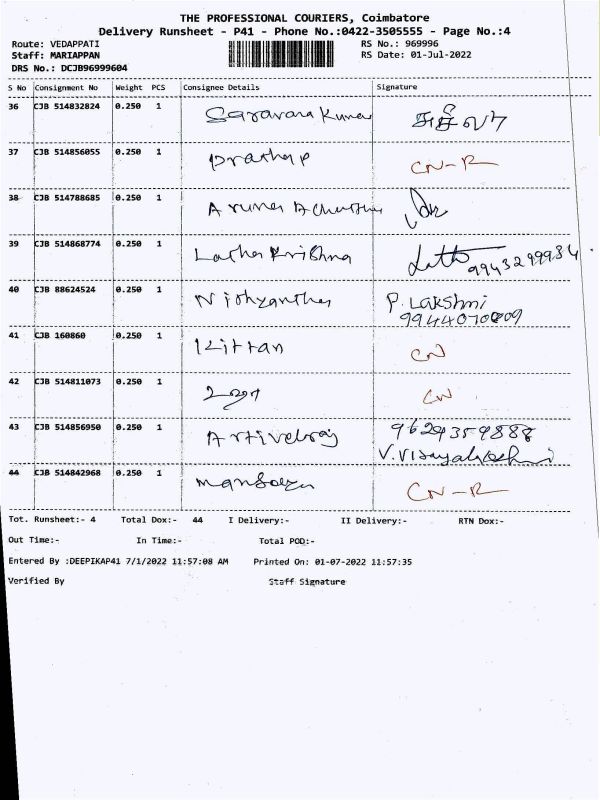 THE PROFESSIONAL COURIERS, Coimbatore
Delivery Runsheet - P41 - Phone No.:0422-3505555 - Page No.:4
Route: VEDAPPATI RS No.: 969996
Staff: MARIAPPAN RS Date: 01-Jul-2022
DRS No.: DCJB96999604
S No Consignment No Weight PCS Consignee Details Signature
36 CJB 514832824 0.250 1 Saravana Kumar
37 CJB 514856055 0.250 1 Prathap CN-R
38 CJB 514788685 0.250 1
39 CJB 514868774 0.250 1 Latha Krishna Latha
9943299934
40 CJB 88624524 0.250 1 Nithyantha P. Lakshmi
41 CJB 160860 0.250 1 Kittan CN
42 CJB 514811073 0.250 1 CN
43 CJB 514856950 0.250 1 9629359888
V. Vijayalakshmi
44 CJB 514842968 0.250 1 CN-R
Tot. Runsheet:- 4 Total Dox:- 44 I Delivery:- II Delivery:- RTN Dox:-
Out Time:- In Time:- Total POD:-
Entered By :DEEPIKAP41 7/1/2022 11:57:08 AM Printed On: 01-07-2022 11:57:35
Verified By Staff Signature